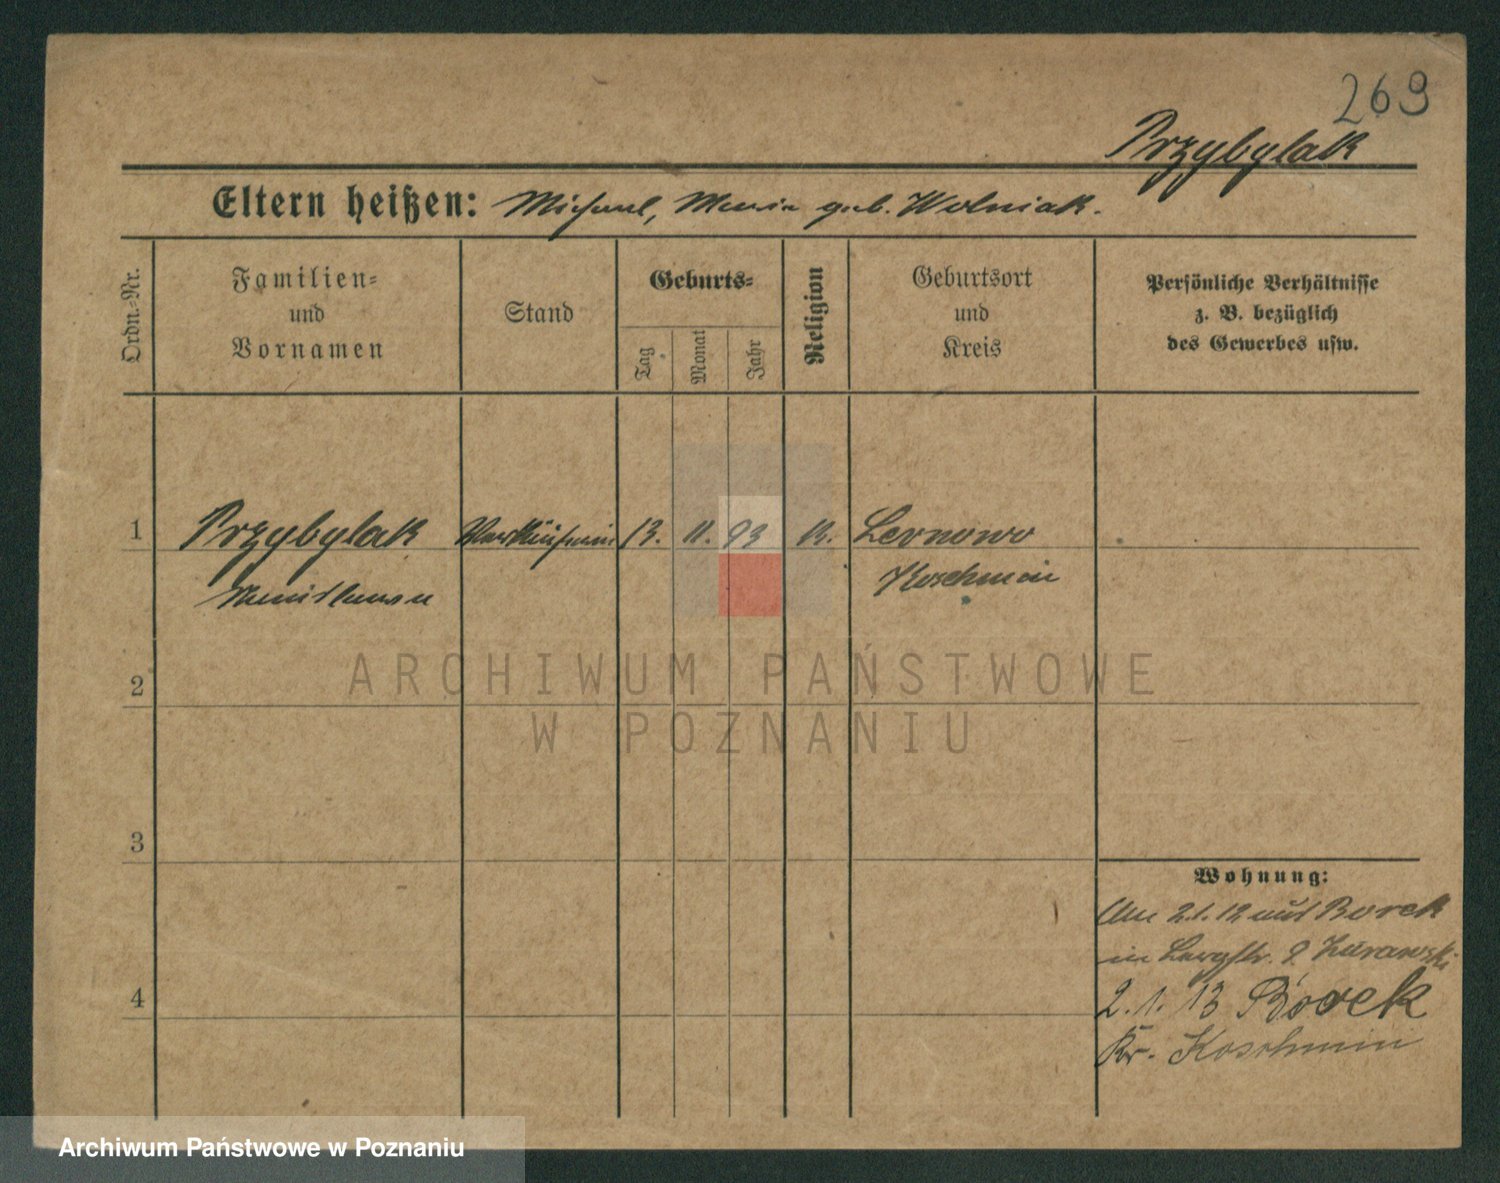 269
Przybylak
Eltern heißen: Michael, Maria geb. Wolniak.
Ordn.-Nr.
Familien-
und
Vornamen
Stand
Geburts-
Tag
Monat
Jahr
Religion
Geburtsort
und
Kreis
Persönliche Verhältnisse
z. B. bezüglich
des Gewerbes usw.
1 Przybylak Verkäuferin 13. 11. 93 K.
Koschmin
2
ARCHIWUM PAŃSTWOWE
W POZNANIU
3
4
Wohnung:
Am 2.1.12 aus Borek
in 9 Zurawski
2.1.13 Borek
Kr. Koschmin
Archiwum Państwowe w Poznaniu